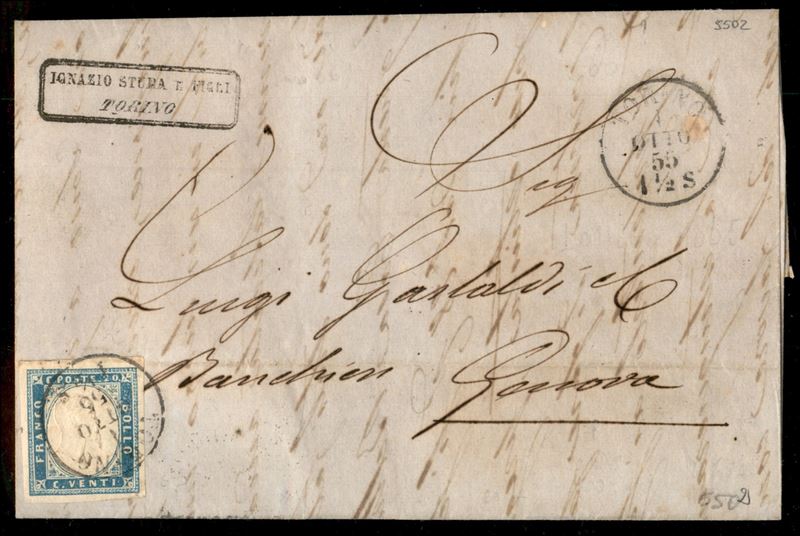 5502
IGNAZIO STURA E FIGLI
TORINO
TORINO
1
OTTO
55
1 ½ S
Sig
Luigi Gastaldi & C
Banchieri Genova
C. POSTE 20
FRANCO
BOLLO
C. VENTI
5502